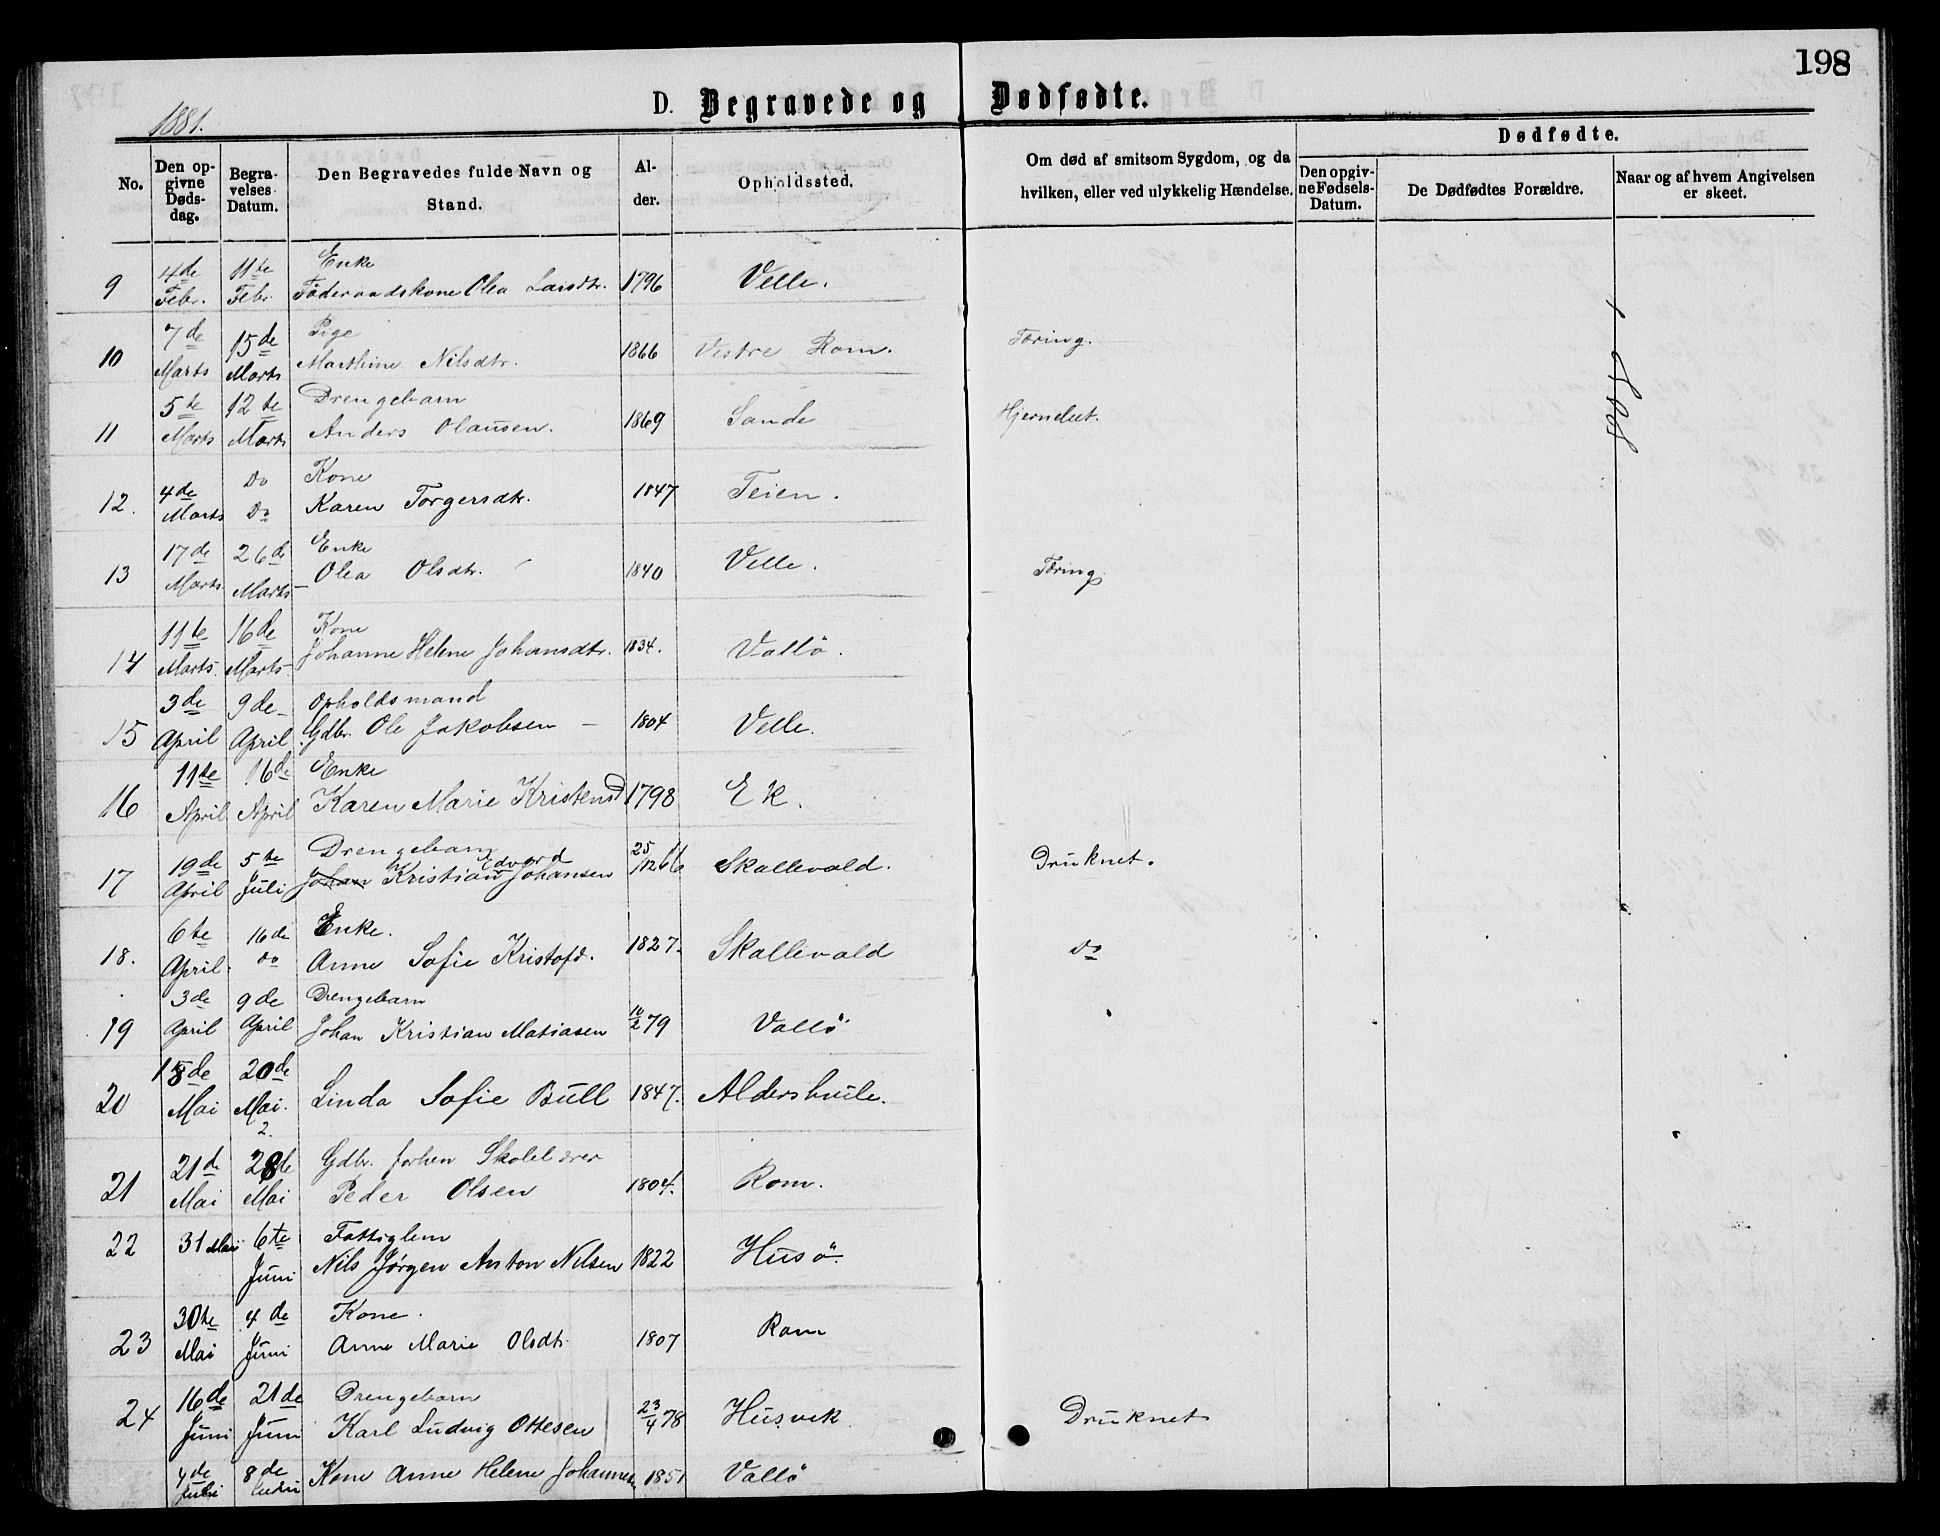 198
1881.
D. Begravede og Dødfødte.
No.
Den opgivne Dødsdag.
Begravelses Datum.
Den Begravedes fulde Navn og Stand.
Alder.
Opholdssted.
Om død af smitsom Sygdom, og da hvilken, eller ved ulykkelig Hændelse.
Dødfødte.
Den opgivne Fødsels-Datum.
De Dødfødtes Forældre.
Naar og af hvem Angivelsen er skeet.
9 4de Febr. 11te Febr Enke Föderaadskone Olea Larsdtr. 1796 Velle.
10 7de Marts 15de Marts Pige Marthine Nilsdtr. 1866 Vestre Rom. Tæring.
11 5te Marts 12te Marts Drengebarn Anders Olausen. 1869 Sande Hjernebet.
12. 4de Marts Do Do Kone Karen Torgersdtr. 1847 Teien.
13 17de Marts 26de Marts Enke Olea Olsdtr. 1840 Velle. Tæring
14 11te Marts 16de Marts Kone Johanne Helene Johansdtr. 1834. Vallö.
15 3de April 9de April Opholdsmand Gdbr. Ole Jakobsen 1804 Velle.
16 11te April 16de April Enke Karen Marie Kristensd 1798 Ek.
17 19de April 5te Juli Drengebarn Johan Kristian Edvard Johansen 25/12 66 Skallevald. Druknet.
18. 6te April. 16de do Enke. Anne Sofie Kristofd. 1827. Skallevald do
19 3de April 9de April Drengebarn Johan Kristian Matiasen 10/2 79 Vallö
20 18de Mai 20de Mai. Linda Sofie Bull 1847. Aldershvile.
2.
21 21de Mai 28de Mai Gdbr. forhen Skolelærer Peder Olsen 1804. Rom.
22 31 Mai 6te Juni Fattiglem Nils Jørgen Anton Nilsen 1822 Husö.
23 30te Mai 4de Juni Kone. Anne Marie Olsdtr 1807 Rom
24 16de Juni 21de Juni Drengebarn Karl Ludvig Ottesen 23/4 78 Husvek Druknet
4de Juli 8de Juli Kone Anne Helene 1851 Vallö